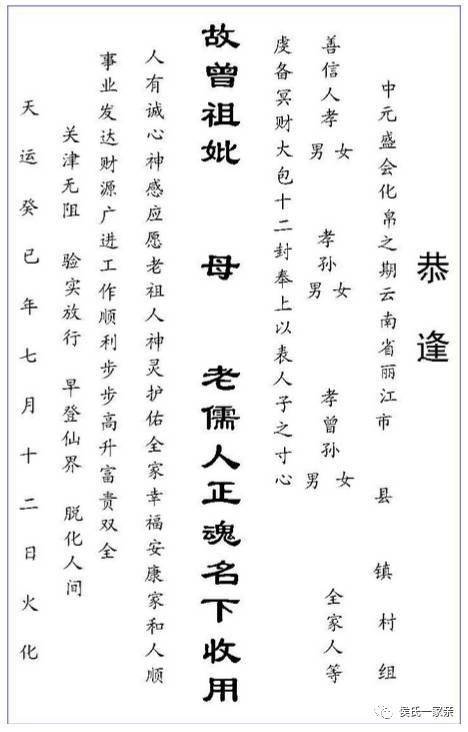 恭逢
中元盛会化帛之期云南省丽江市 县 镇 村 组
善信人孝男女 孝孙男女 孝曾孙男女 全家人等
虔备冥财大包十二封奉上以表人子之寸心
故曾祖妣 母 老儒人正魂名下收用
人有诚心神感应愿老祖人神灵护佑全家幸福安康家和人顺
事业发达财源广进工作顺利步步高升富贵双全
关津无阻 验实放行 早登仙界 脱化人间
天运癸已年七月十二日火化
侯氏一家亲